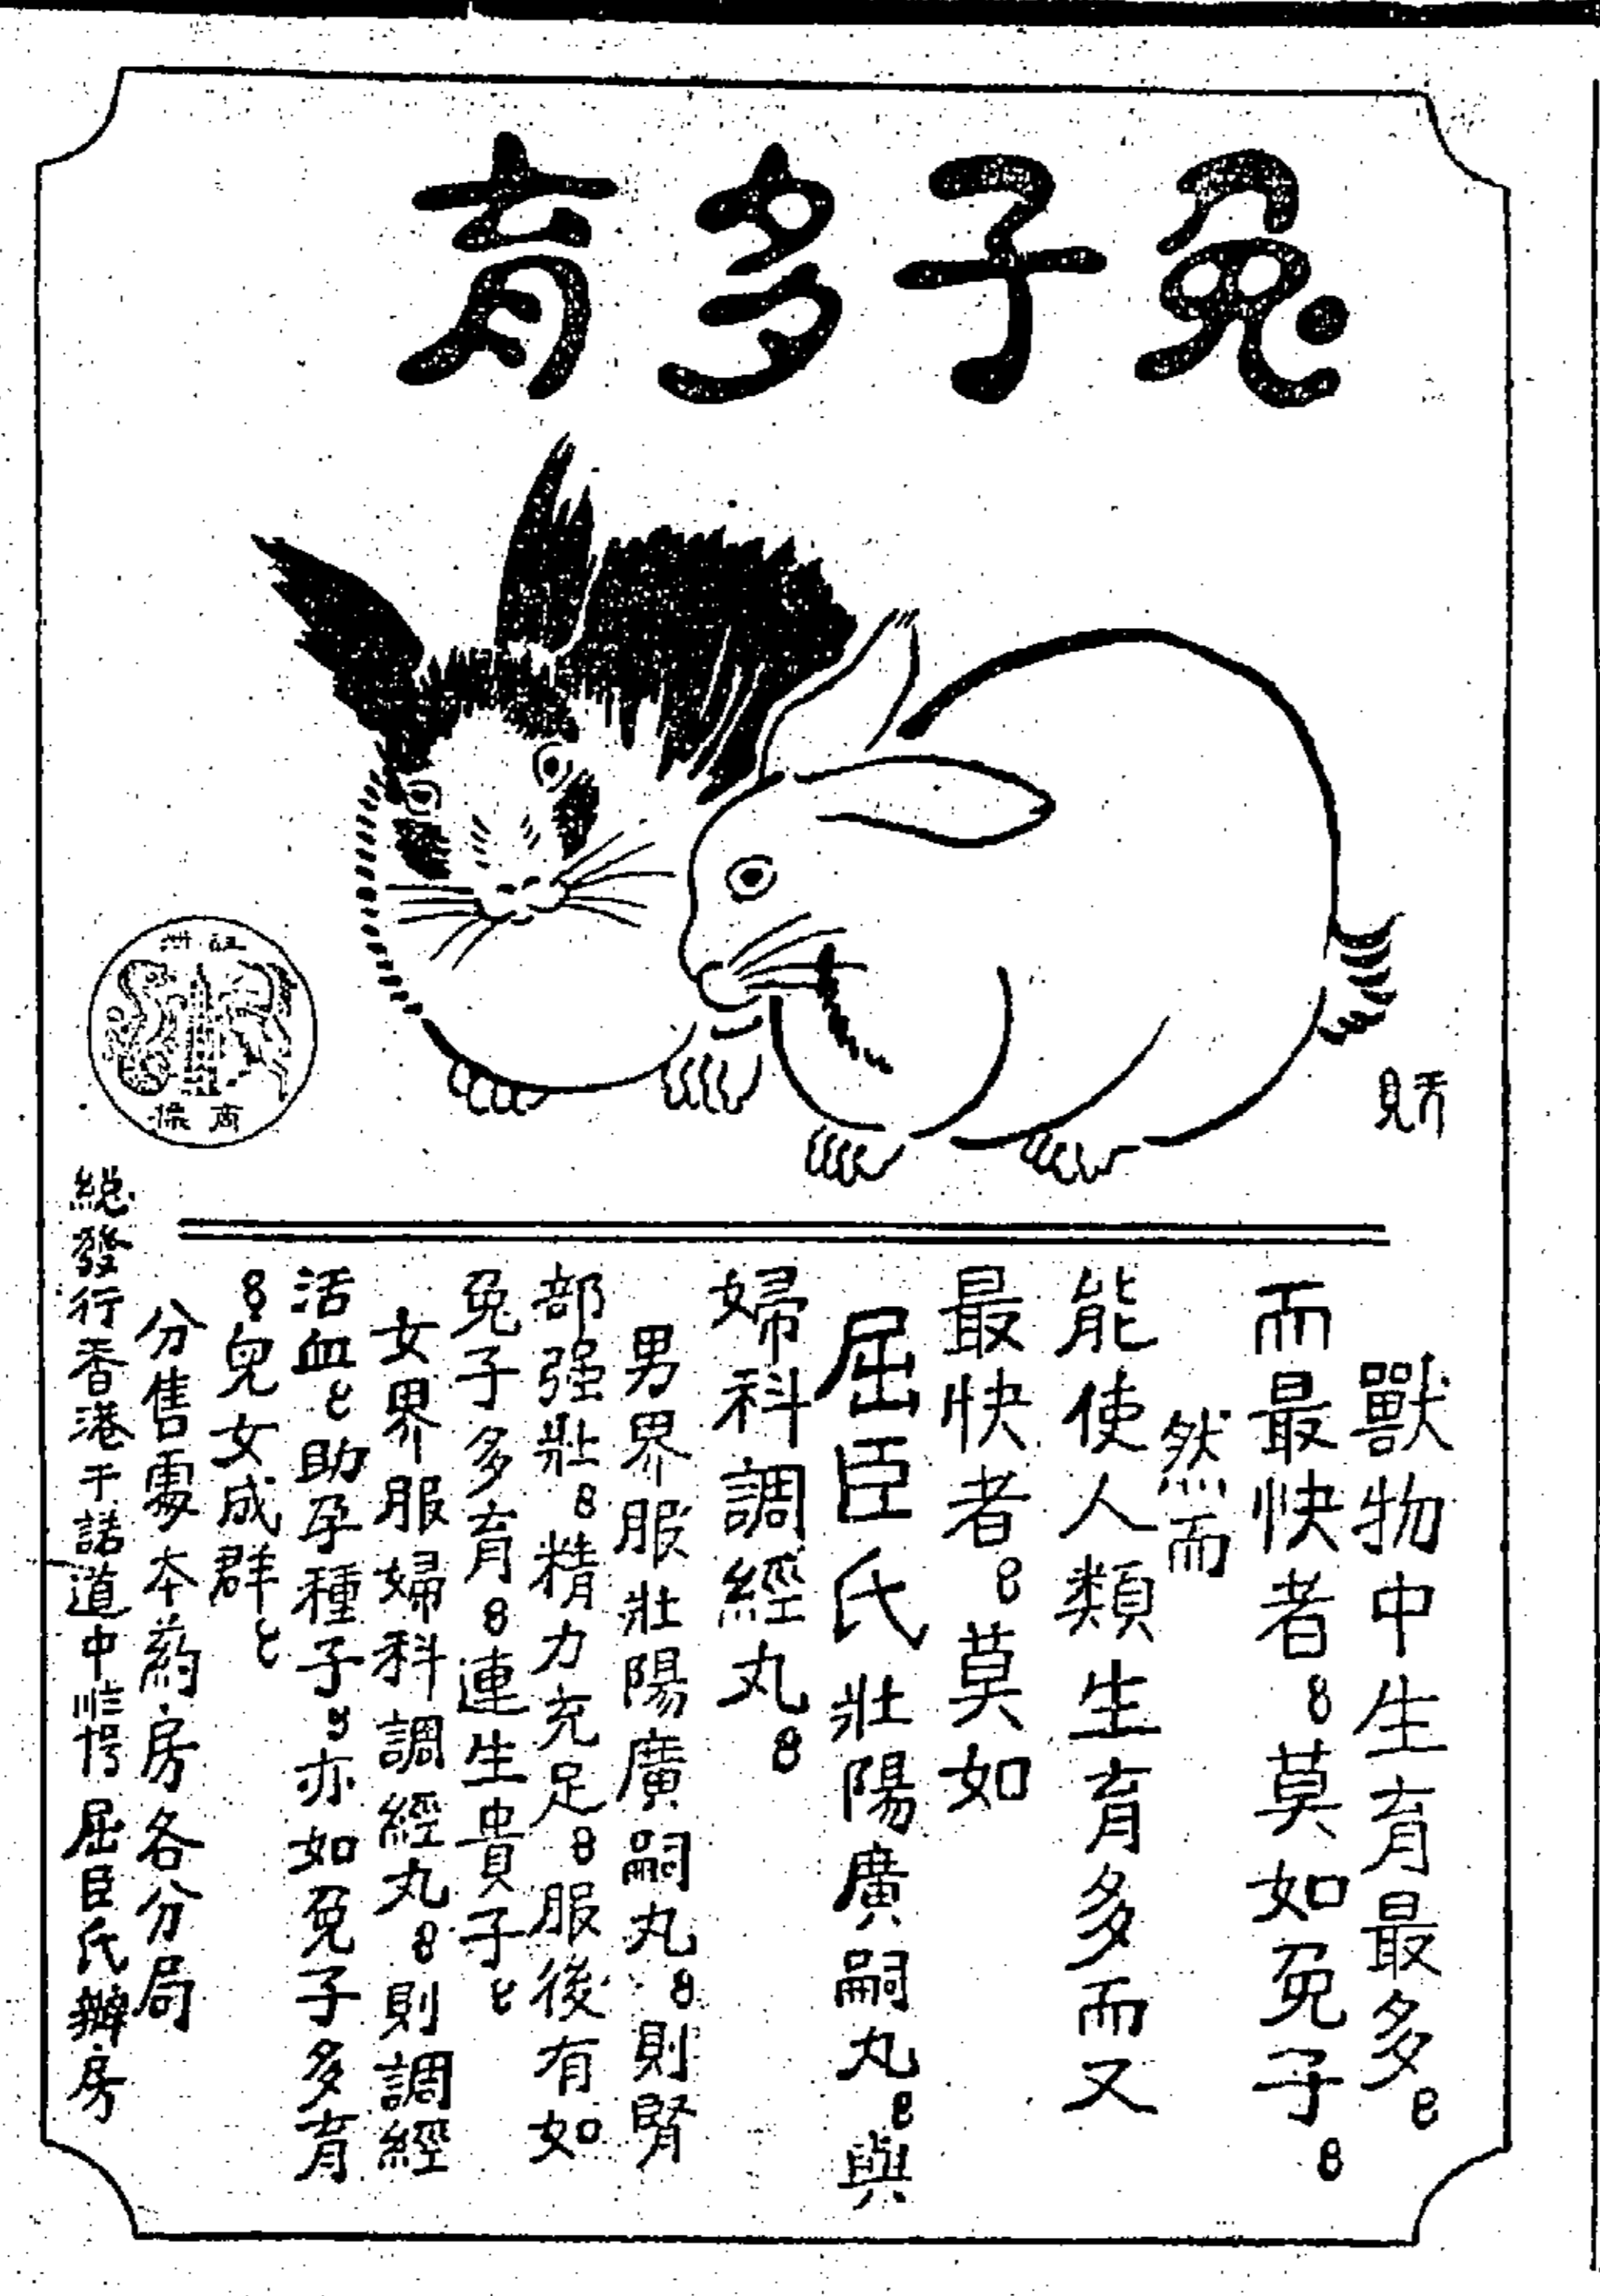 兔子多育
獸物中生育最多
而最快者莫如兔子
然而
能使人類生育多而又
最快者莫如
屈臣氏壯陽廣嗣丸與
婦科調經丸
男界服壯陽廣嗣丸則腎
部强壯精力充足服後有如
兔子多育連生貴子
女界服婦科調經丸則調經
活血助孕種子亦如兔子多育
兒女成群
分售處本葯房各分局
總發行香港干諾道中屈臣氏葯房
商標